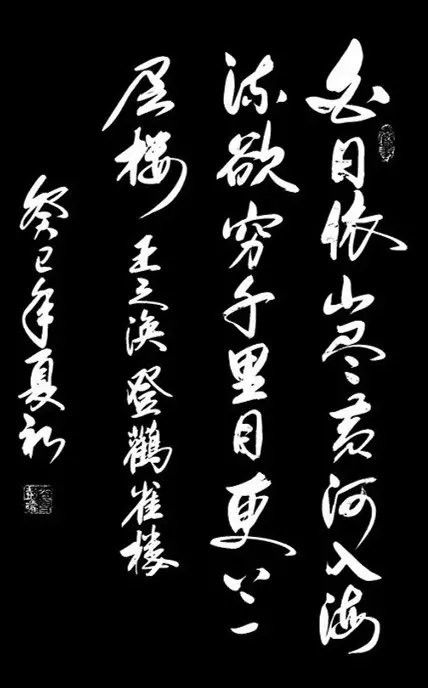 白日依山尽黄河入海
流欲穷千里目更上一
层楼 王之涣登鸛雀楼
癸巳年夏初